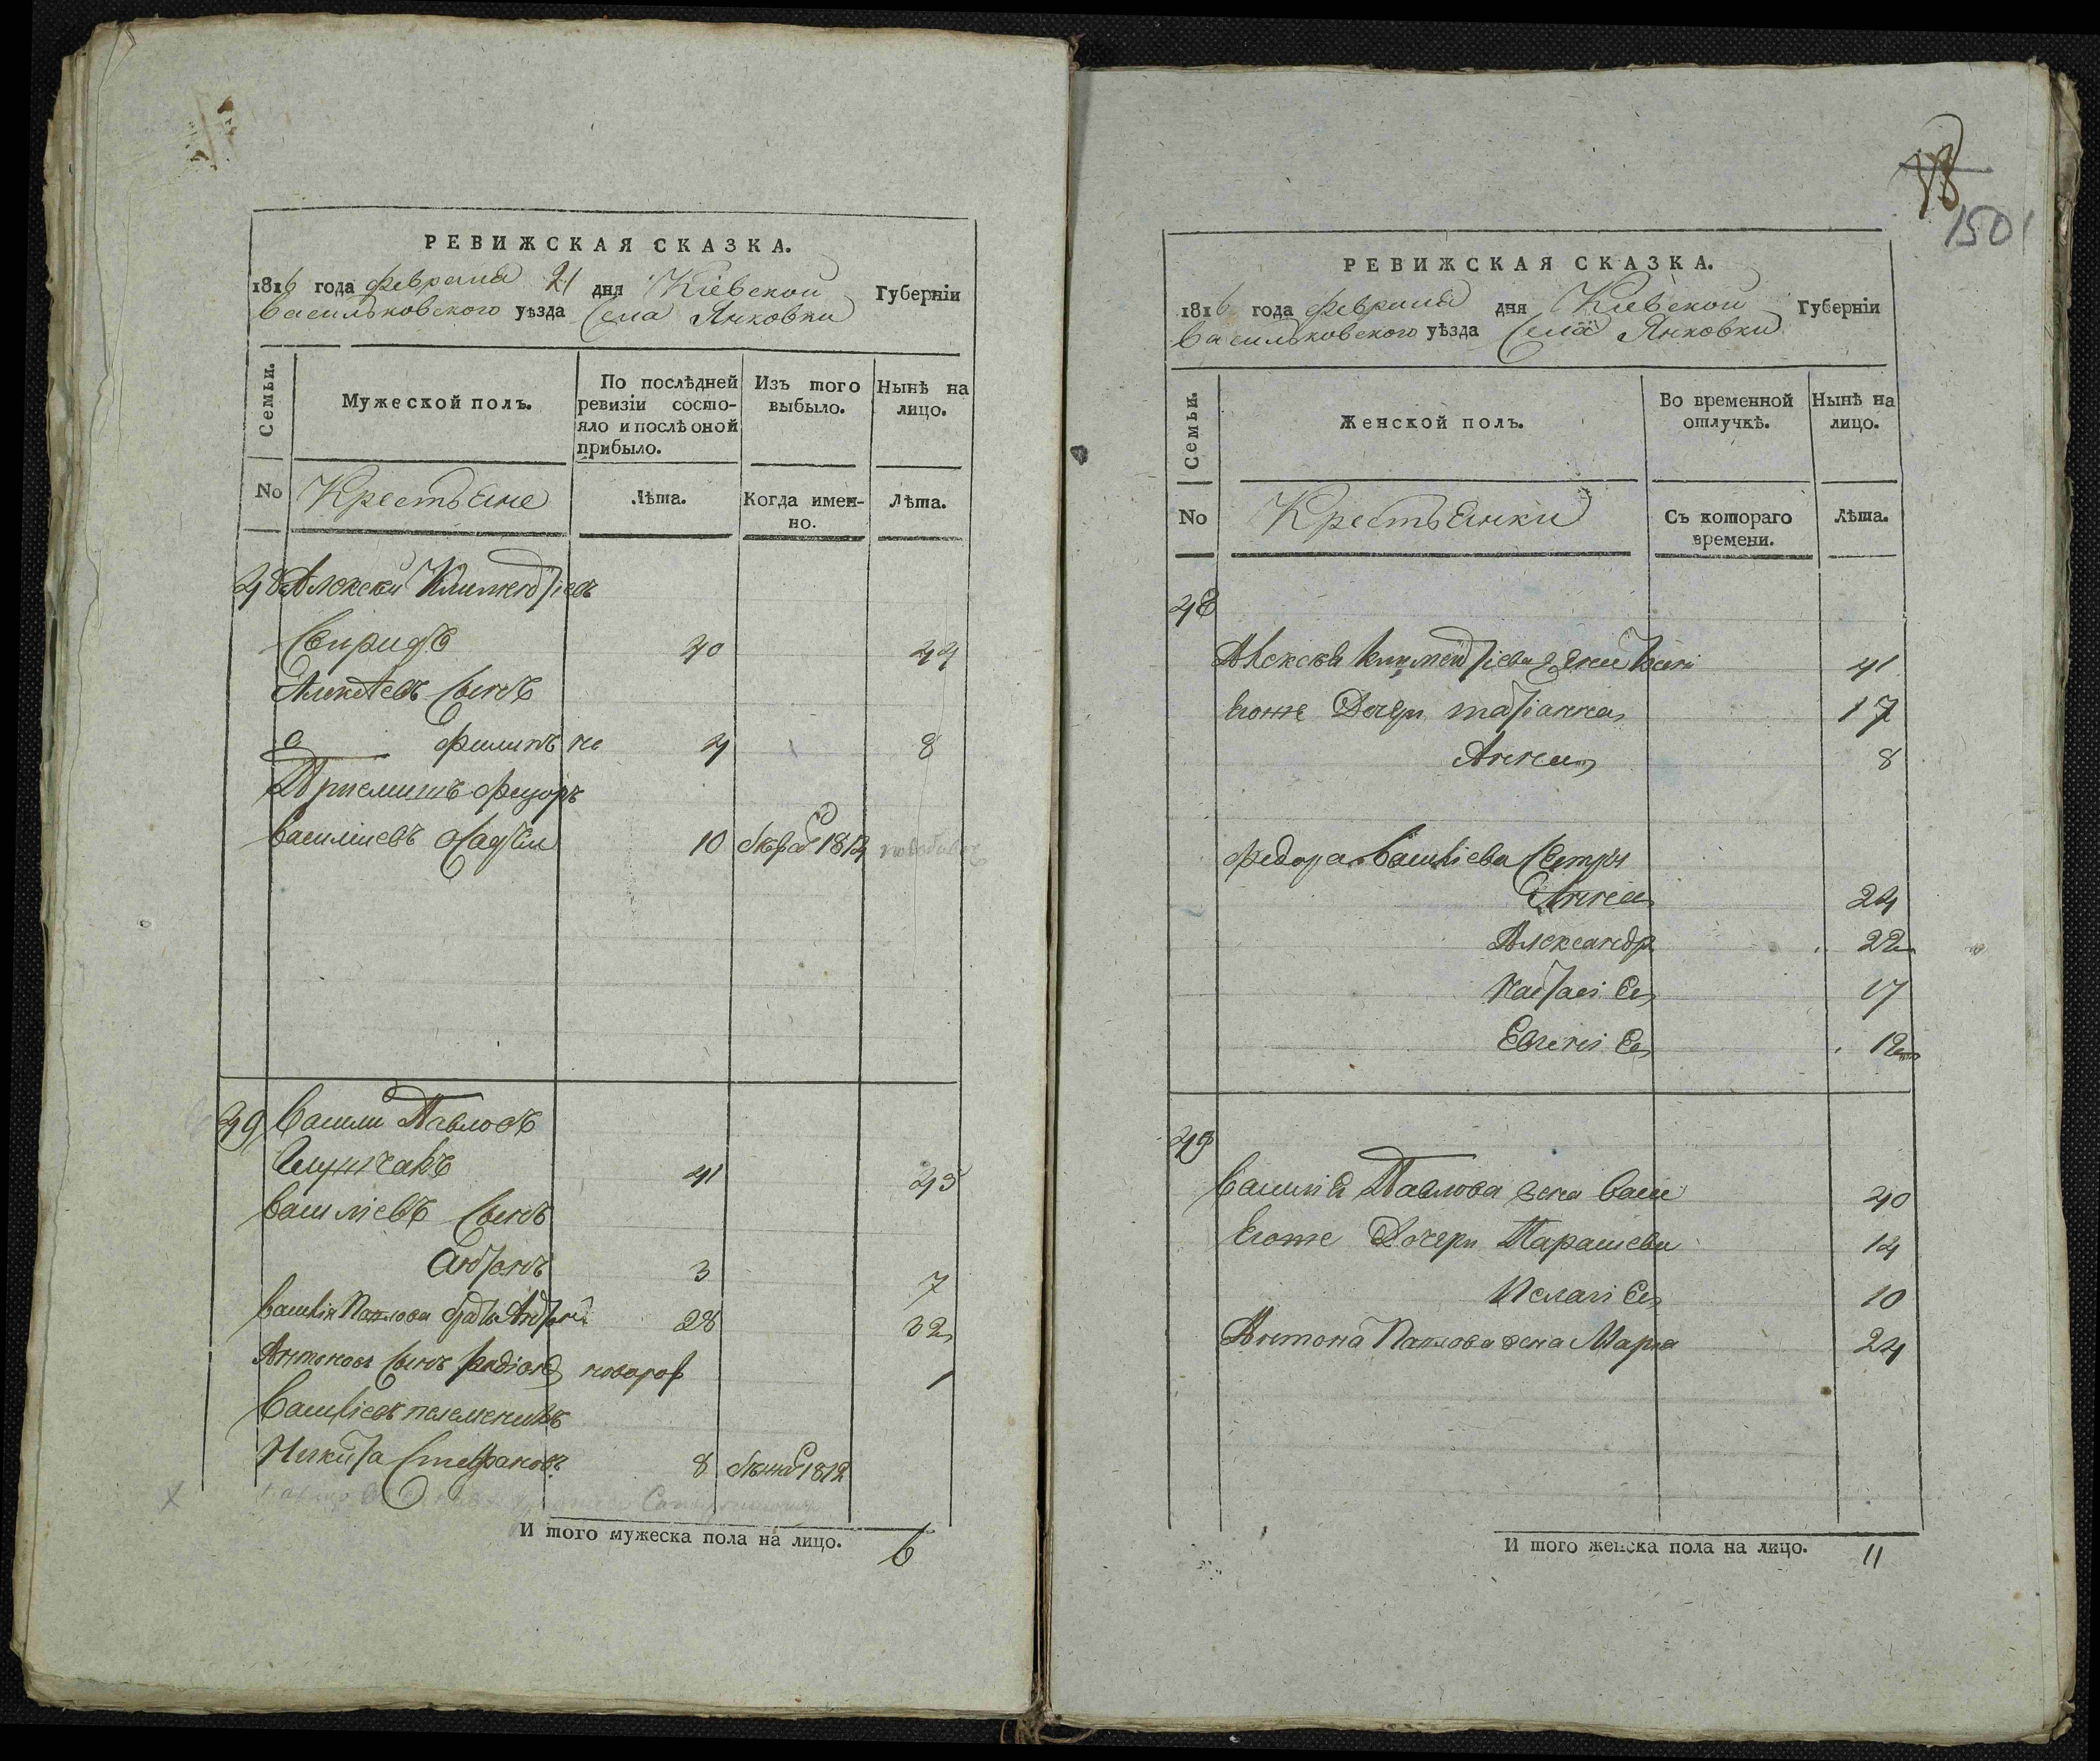 РЕВИЖСКАЯ СКАЗКА.
1816 года февраля 21 дня Кіевской Губерніи
Васильковского уѣзда Села Янковки
Семьи.
Мужеской полъ.
По послѣдней ревизіи состояло и послѣ оной прибыло.
Изъ того выбыло.
Нынѣ на лицо.
No
Крестьяне
Лѣта.
Когда именно.
Лѣта.
48 Алексѣй Климентіевъ
Свиридъ 40 44
Алексѣевъ Сынъ
Филипъ 4 8
Пріемышъ Федоръ
Василіевъ 10 1814
49 Василій Павловъ
41 45
Василіевъ Сынъ
Антонъ 3 7
Василія Павлова братъ Антонъ 28 32
Антоновъ Сынъ новорож 1
Василіевъ племеникъ
Никита Стефановъ 8 1812
И того мужеска пола на лицо. 6
78
150
РЕВИЖСКАЯ СКАЗКА.
1816 года февраля дня Кіевской Губерніи
Васильковского уѣзда Села Янковки
Семьи.
Женской полъ.
Во временной отлучкѣ.
Нынѣ на лицо.
No
Крестьянки
Съ котораго времени.
Лѣта.
48
Алексѣя Климентіева жена 41
Егоже Дочери татіанна 17
Анна 8
Федора Василіева Сестры
Анна 24
Александр 22
Настасія 17
Евгенія 12
49
Василія Павлова жена Васи 40
Егоже Дочери Парасцева 14
Пелагія 10
Антона Павлова жена Мария 24
И того женска пола на лицо. 11